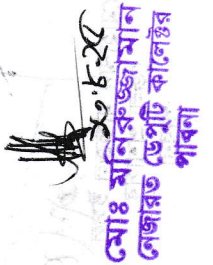 ২৯.৭.২৫
মোঃ মনিরুজ্জামান
নেজারত ডেপুটি কালেক্টর
পাবনা